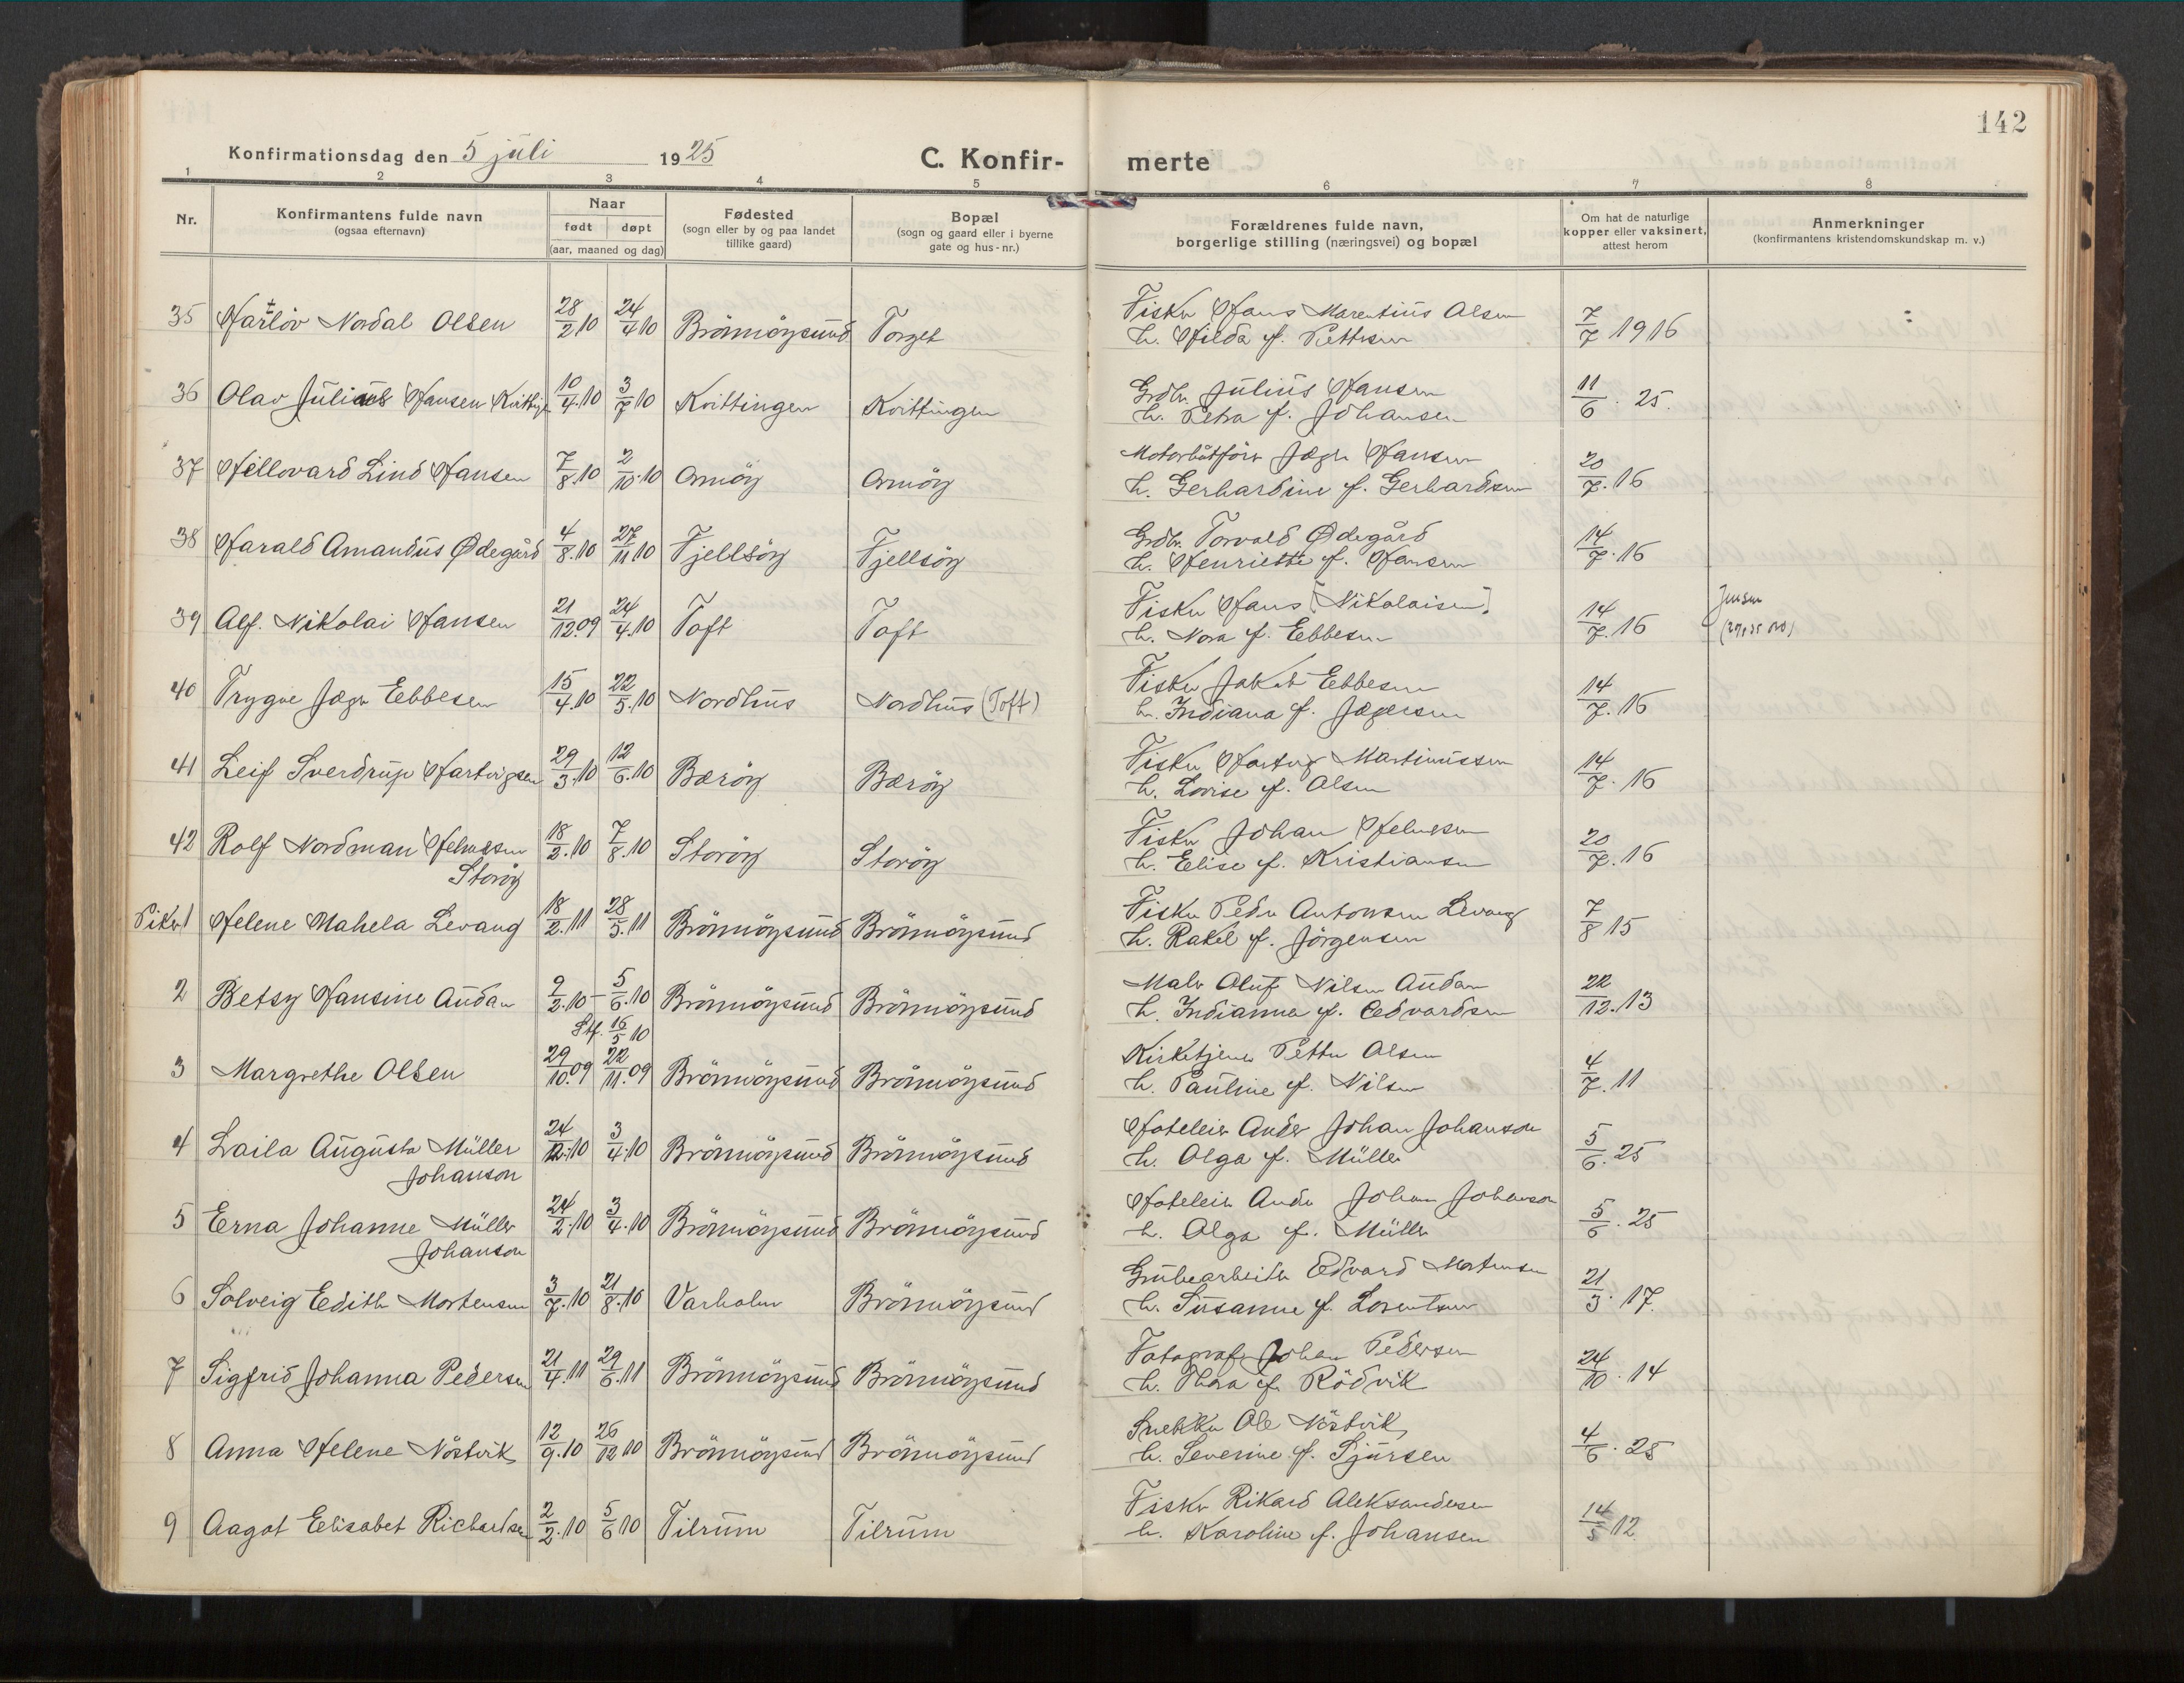 142
Konfirmationsdag den 5 juli 1925 C. Konfir- merte
1 2 3 4 5 6 7 8
Nr. Konfirmantens fulde navn (ogsaa efternavn) Naar født døpt (aar, maaned og dag) Fødested (sogn eller by og paa landet tillike gaard) Bopæl (sogn og gaard eller i byerne gate og hus-nr.) Forældrenes fulde navn, borgerlige stilling (næringsvei) og bopæl Om hat de naturlige kopper eller vaksinert, attest herom Anmerkninger (konfirmantens kristendomskundskap m. v.)
35 Harlöv Nordal Olsen 28/2 10 24/4 10 Brönnöysund Torget Fisker Hans Marentius Olsen 7/7 1916
h. Hilda f. Pettersen
36 Olav Julius Hansen Kvitting 10/4.10 3/7 10 Kvittingen Kvittingen Grdbr. Julius Hansen 11/6. 25.
h. Petra f. Johansen
37 Hellovard Lind Hansen 7/8.10 2/10.10 Omöy Omöy Motorbåtförer Jæger Hansen 20/7.16
h. Gerhardine f. Gerhardsen
38 Harald Amandus Ødegård 4/8.10 27/11 10 Fjellsöy Fjellsöy Grdbr. Torvald Ødegård 14/7.16
h. Henriette f. Hansen
39 Alf. Nikolai Hansen 21/12.09 24/4.10 Toft Toft Fisker Hans [Nikolaisen]. 14/7.16 Jensen
h. Nora f. Ebbesen
40 Trygve Jæger Ebbesen 15/4.10 22/5.10 Nordhus Nordhus (Toft) Fisker Jakob Ebbesen 14/7.16
h. Indiana f. Jægersen
41 Leif Sverdrup Hartvigsen 29/3.10 12/6.10 Bæröy Bæröy Fisker Hartvig Martinussen 14/7. 16
h. Lovise f. Olsen
42 Rolf Nordman Helmersen 18/2.10 7/8.10 Storöy Storöy Fisker Johan Helmersen 20/7.16
Storöy h. Elise f. Kristiansen
Piker 1 Helene Mahela Levang 18/2.11 28/5.11 Brönnöysund Brönnöysund Fisker Peder Antonsen Levang 7/8 15
h. Rakel f. Jörgensen
2 Betsy Hansine Audan 9/2.10 - 5/6.10 Brönnöysund Brönnöysund Maler Oluf Nilsen Audan 22/12.13
Stf. 16/5 10 h. Indianna f. Edvardsen
3 Margrethe Olsen 29/10.09 22/11.09 Brönnöysund Brönnöysund Kirketjener Petter Olsen 4/7.11
h. Pauline f. Nilsen
4 Laila Augusta Müller 24/2.10 3/4.10 Brönnöysund Brönnöysund Hoteleier Ander Johan Johanson 5/6.25
Johanson h. Olga f. Müller
5 Erna Johanne Müller 24/2.10 3/4.10 Brönnöysund Brönnöysund Hoteleier Ander Johan Johanson 5/6.25
Johanson h. Olga f. Müller
6 Solveig Edith Mortensen 3/7.10 21/8.10 Varholm Brönnöysund Grubearbeider Edvard Mortensen 21/3.17.
h. Susanne f. Lorentsen
7 Sigfrid Johanna Pedersen 21/4.11 29/6.11 Brönnöysund Brönnöysund Fotograf Johan Pedersen 24/10.14
h. Thora f. Rödvik
8 Anna Helene Nöstvik 12/9.10 26/12 10 Brönnöysund Brönnöysund Snekker Ole Nöstvik 4/6. 25
h. Severine f. Sjursen
9 Aagot Elisabet Richardsen 2/2.10 5/6 10 Tilrum Tilrum Fisker Rikard Aleksandersen 14/5 12
h. Karoline f. Johansen